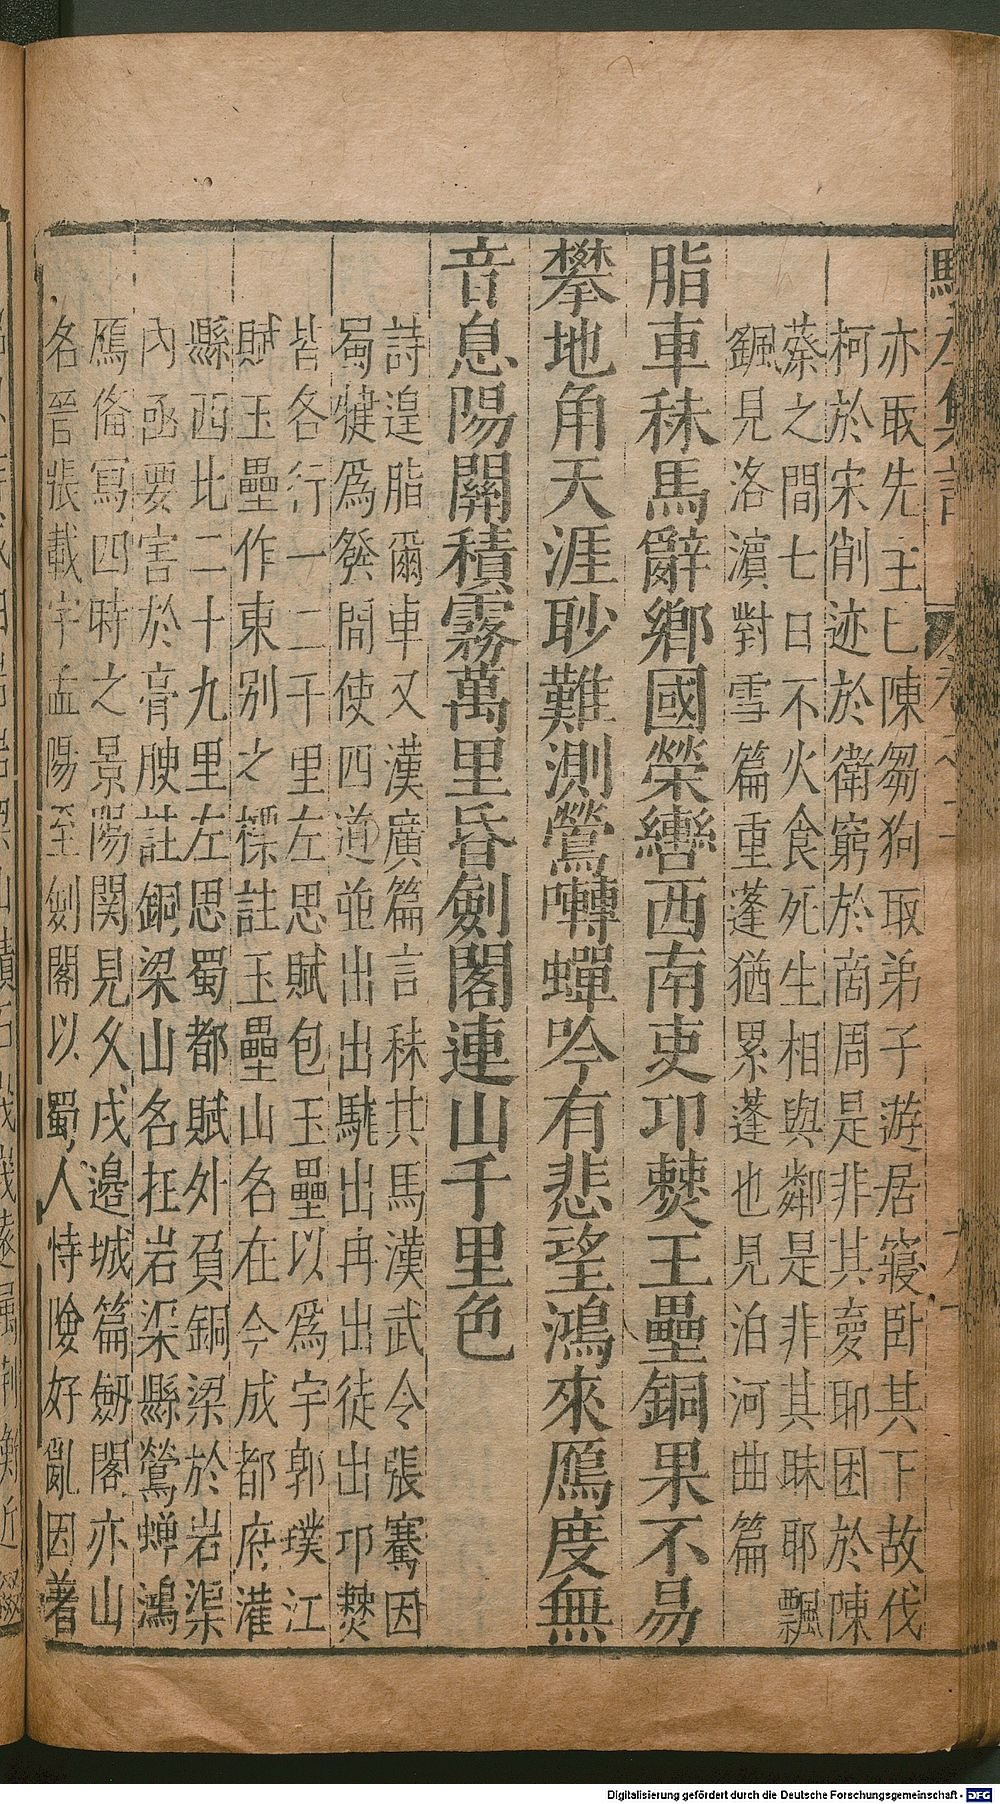 亦取先王已陳芻狗取弟子遊居寢卧其下故伐
柯於宋削迹於衛窮於商周是非其夢耶困於陳
蔡之間七日不火食死生相與鄰是非其眯耶飄
颻見洛濵對雪篇重蓬猶累蓬也見泊河曲篇
脂車秣馬辭鄉國縈轡西南吏卭僰王壘銅果不易
攀地角天涯眇難測鶯囀蟬吟有悲望鴻來鴈度無
音息陽關積霧萬里昏劍閣連山千里色
詩遑脂爾車又漢廣篇言秣其馬漢武令張騫因
蜀犍為發間使四道並出出駹出冉出徙出卭僰
皆各行一二千里左思賦包玉壘以為宇郭璞江
賦玉壘作東别之標註玉壘山名在今成都府灌
縣西北二十九里左思蜀都賦外負銅梁於岩渠
内函要害於膏腴註銅梁山名在岩渠縣鶯蟬鴻
鴈俻寫四時之景陽関見久戌邉城篇劒閣亦山
名晉張載字孟陽至劍閣以蜀人恃險好亂因著
Digitalisierung gefördert durch die Deutsche Forschungsgemeinschaft - DFG